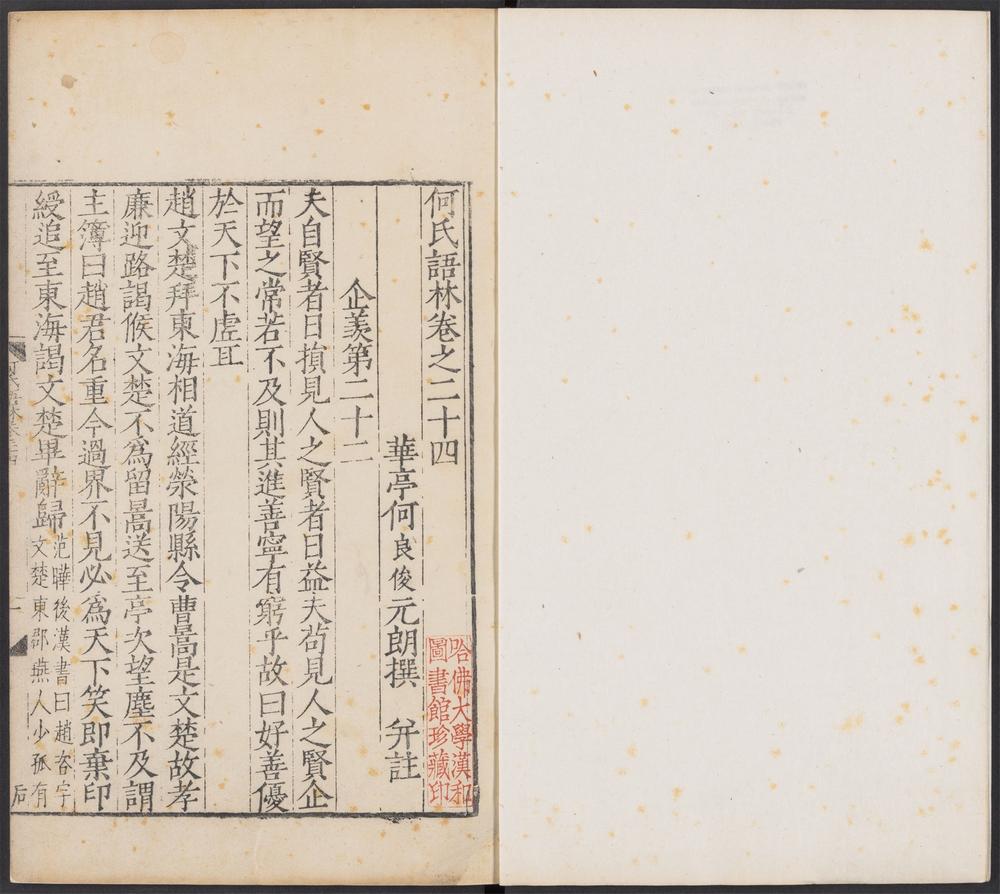 何氏語林卷之二十四
華亭何良俊元朗撰 弁註
企羨第二十二
夫自賢者日損見人之賢者日益夫苟見人之賢企
而望之常若不及則其進善寧有窮乎故曰好善優
於天下不虛耳
趙文楚拜東海相道經滎陽縣令曹暠是文楚故孝
廉迎路謁候文楚不為留暠送至亭次望塵不及謂
主簿曰趙君名重今過界不見必為天下笑即棄印
綬追至東海謁文楚畢辭歸
范曄後漢書曰趙咨字
文楚東郡燕人少孤有
哈佛大學漢和
圖書館珍藏印